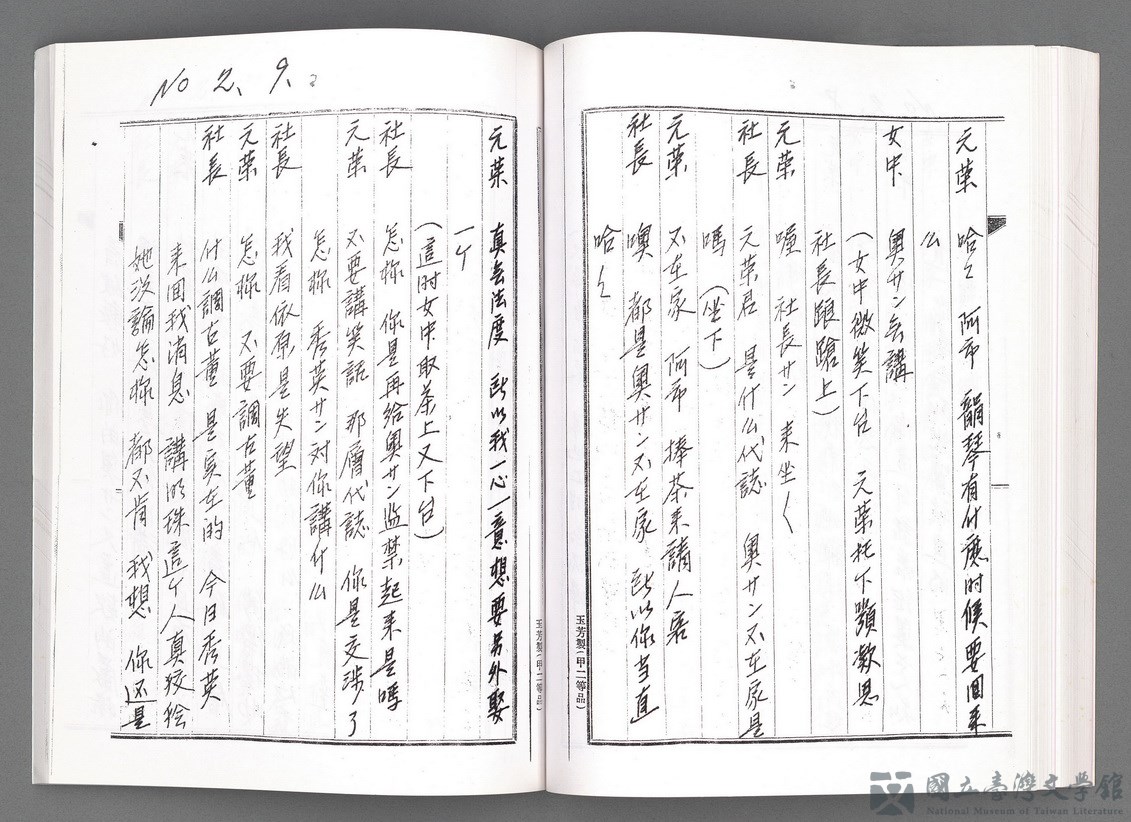 元葉 哈〻 阿市 韻琴有什麽时候要回来
么
女中 奧サン無講
(女中微笑下台 元葉托下顎歎息
社長踉蹌上)
元葉 喔 社長サン 来坐〱
社長 元葉君 是什么代誌 奧サン不在家是
嗎 (坐下)
元葉 不在家 阿市 捧茶来請人客
社長 噢 都是奧サン不在家 所以你当直
哈〻
No 2、9、
元葉 真無法度 所以我一心一意想要另外娶
一个
(這时女中取茶上又下台)
社長 怎樣 你是再给奧サン监禁起来是嗎
元葉 不要講笑話 那層代誌 你是交涉了
怎樣 秀英サン对你講什么
社長 我看依原是失望
元葉 怎樣 不要調古董
社長 什么調古董 是实在的 今日秀英
来回我消息 講明珠這个人真狡獪
她没論怎樣 都不肯 我想 你还是
玉芳製(甲二等品)
玉芳製(甲二等品)
國立臺灣文學館
National Museum of Taiwan Literature